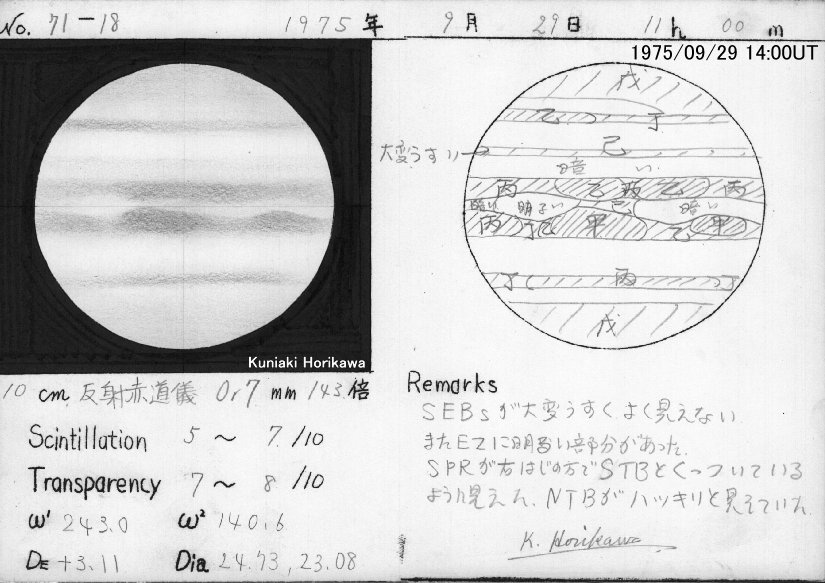 No. 71-18 1975年 9月 29日 11h 00m
1975/09/29 14:00UT
戊
乙 丁
大変うすい
己
暗い
丙 乙 丙 乙 丙
暗い 明るい 己 暗い
丙 丁 乙 甲 乙 甲
丁 丙 丁
戊
Kuniaki Horikawa
10 cm 反射赤道儀 Or7 mm 143倍
Scintillation 5 ~ 7/10
Transparency 7 ~ 8/10
ω¹ 243.0 ω² 140.6
DE +3.11 Dia 24.73, 23.08
Remarks
SEBsが大変うすくよく見えない
またEZに明るい部分があった.
SPRが右はじの方でSTBとくっついている
ように見えた. NTBがハッキリと見えていた.
K. Horikawa